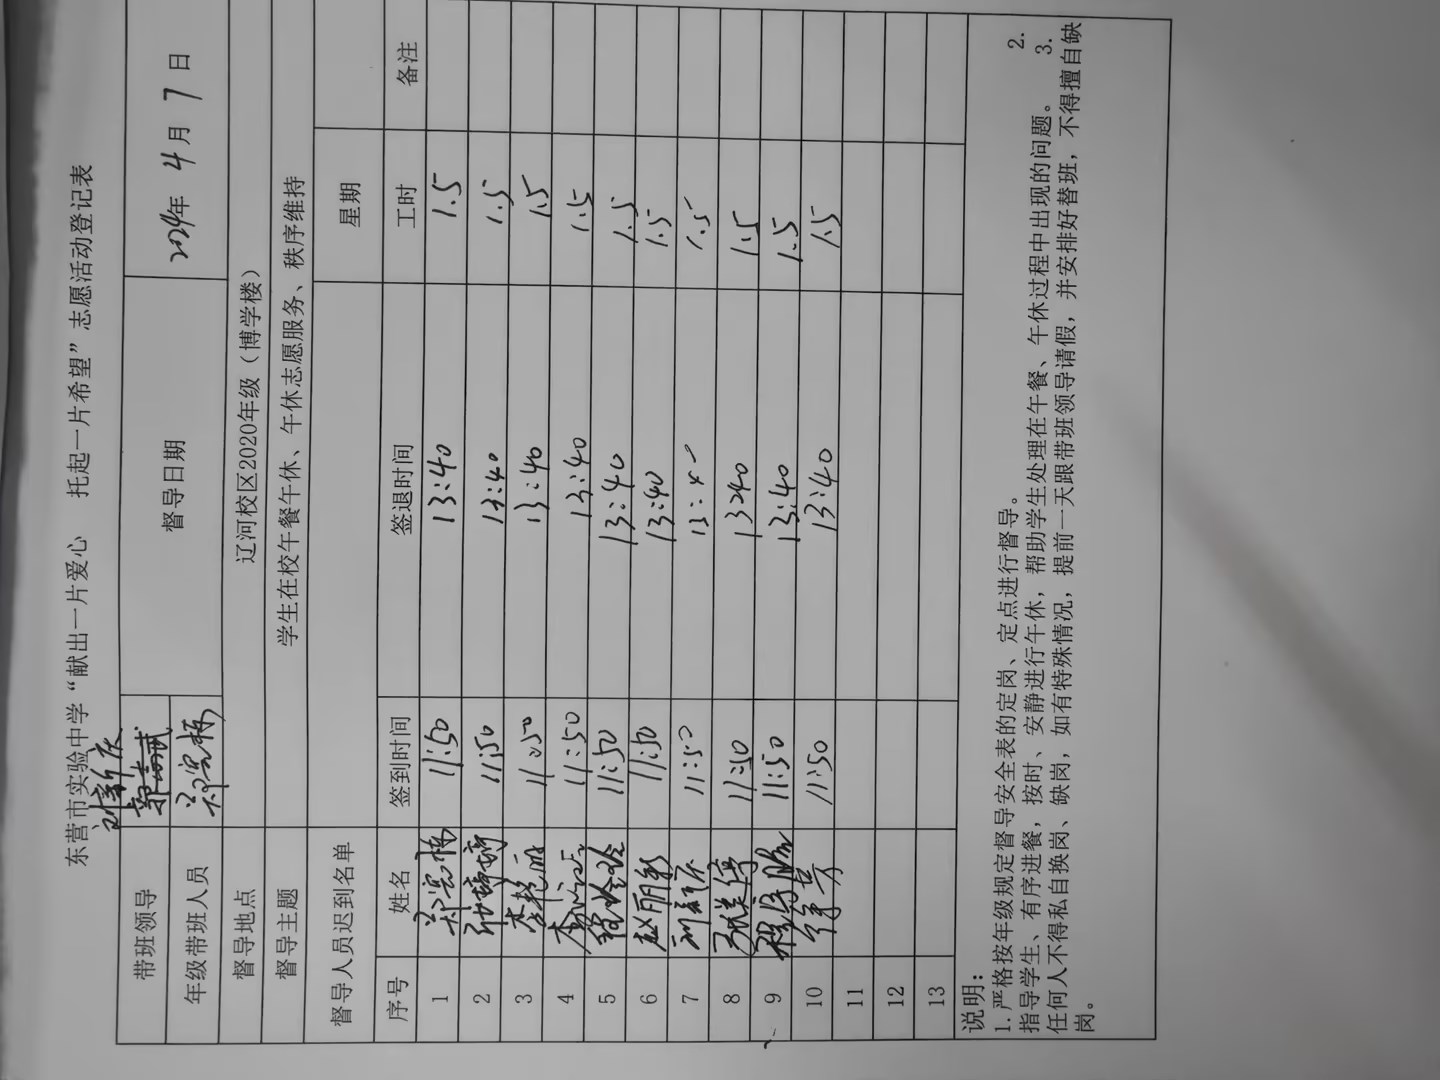 东营市实验中学“献出一片爱心 托起一片希望”志愿活动登记表
带班领导 督导日期 2024年 4月 7日
年级带班人员 郑宪栋
督导地点 辽河校区2020年级（博学楼）
督导主题 学生在校午餐午休、午休志愿服务、秩序维持
督导人员迟到名单 星期
序号 姓名 签到时间 签退时间 工时 备注
1 郑宪栋 11:50 13:40 1.5
2 11:50 13:40 1.5
3 11:50 13:40 1.5
4 11:50 13:40 1.5
5 11:50 13:40 1.5
6 赵丽彩 11:50 13:40 1.5
7 11:50 13:40 1.5
8 11:50 13:40 1.5
9 11:50 13:40 1.5
10 11:50 13:40 1.5
11
12
13
说明：
1.严格按年级规定督导安全表的定岗、定点进行督导。 2.
指导学生、有序进餐，按时、安静进行午休，帮助学生处理在午餐、午休过程中出现的问题。 3.
任何人不得私自换岗、缺岗，如有特殊情况，提前一天跟带班领导请假，并安排好替班，不得擅自缺
岗。